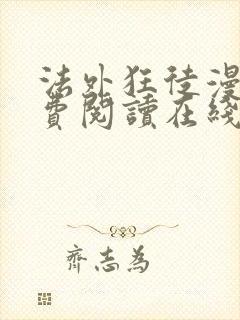 法外狂徒漫
費閱讀在綫
齊志為